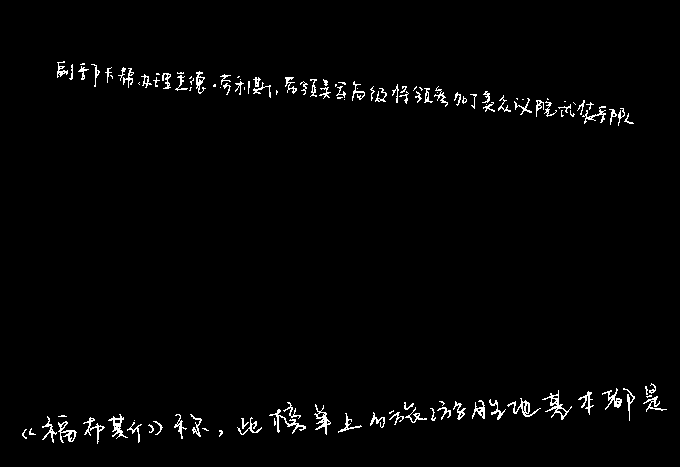 副部长帮办理查德·劳利斯,率领美军高级将领参加了美众议院武装部队
《福布斯》称,此榜单上的旅游胜地基本都是